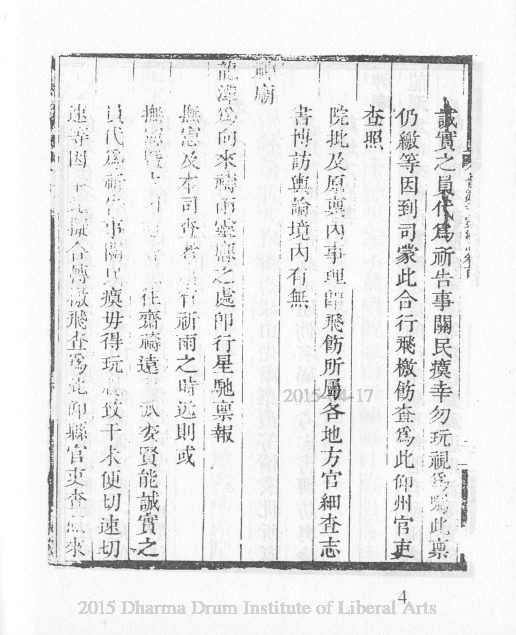 誠實之員代爲祈告事關民瘼幸勿玩視爲囑此稟
仍繳等因到司蒙此合行飛檄飭查爲此仰州官吏
查照
院批及原稟內事理即飛飭所屬各地方官細查志
書博訪輿論境內有無
神廟
龍潭爲向來禱雨靈應之處卽行星馳稟報
撫憲及本司查考
官祈雨之時远則或
撫憲
往齋禱遠
委賢能誠實之
員代爲祈告事關民瘼毋得玩
致干未便切速切
速等因
擬合傳檄飛查爲此仰縣官吏查
來
2015-04-17
4
2015 Dharma Drum Institute of Liberal Arts